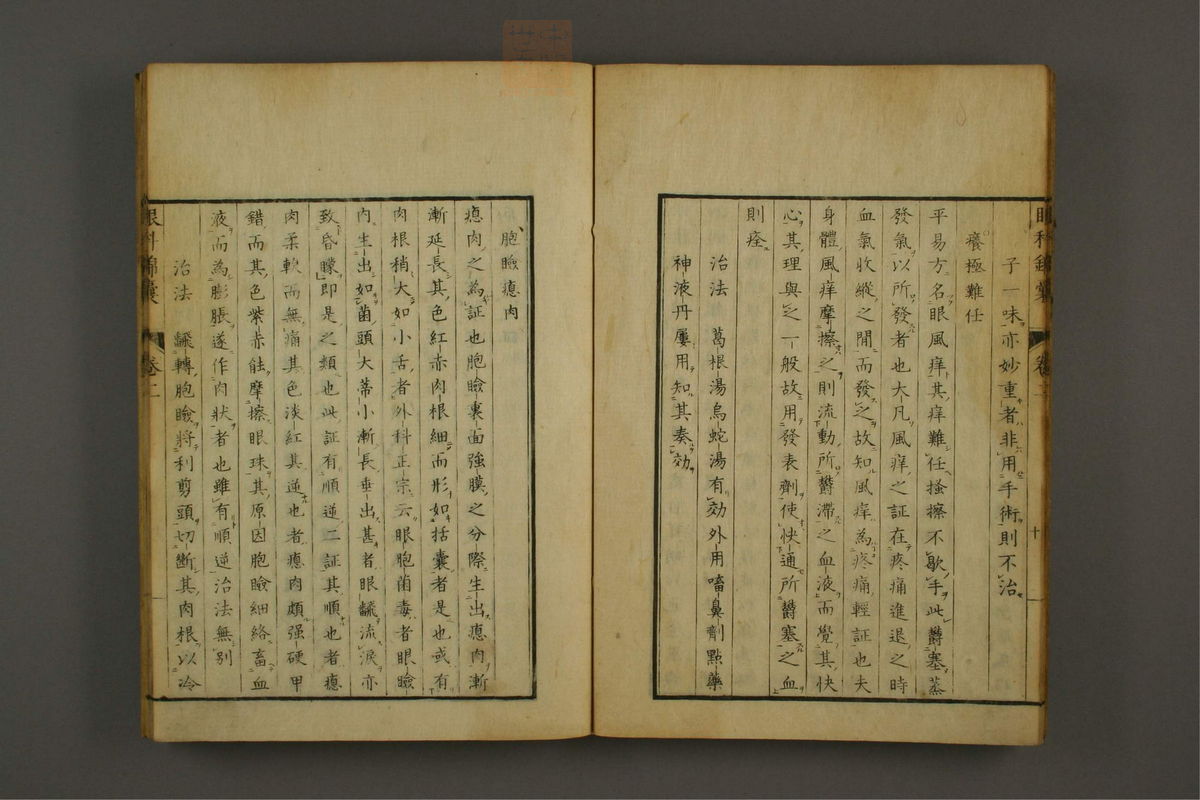 眼科錦囊 卷二 十
子一味亦妙重者非用手術則不治
癢極難任
平易方名眼風痒其痒難任搔擦不歇手此欝塞蒸
發氣以所發者也大凡風痒之証在疼痛進退之時
血氣收縱之間而發之故知風痒為疼痛輕証也夫
身體風痒摩擦之則流動所欝滯之血液而覺其快
心其理與之一般故用發表劑使快通所欝塞之血
則痊
治法 葛根湯烏蛇湯有効外用嗜鼻劑點藥
神液丹屢用知其奏効
胞瞼瘜肉
瘜肉之為証也胞瞼裏面強膜之分際生出瘜肉漸
漸延長其色紅赤肉根細而形如括囊者是也或有
肉根稍大如小舌者外科正宗云眼胞菌毒者眼瞼
內生出如菌頭大蒂小漸長垂出甚者眼翻流淚亦
致昏矇即是之類也此証有順逆二証其順也者瘜
肉柔軟而無痛其色淡紅其逆也者瘜肉頗强硬甲
錯而其色紫赤能摩擦眼珠其原因胞瞼細絡畜血
液而為膨脹遂作肉狀者也雖有順逆治法無別
治法 飜轉胞瞼將利剪頭切斷其肉根以冷
眼科錦囊 卷二